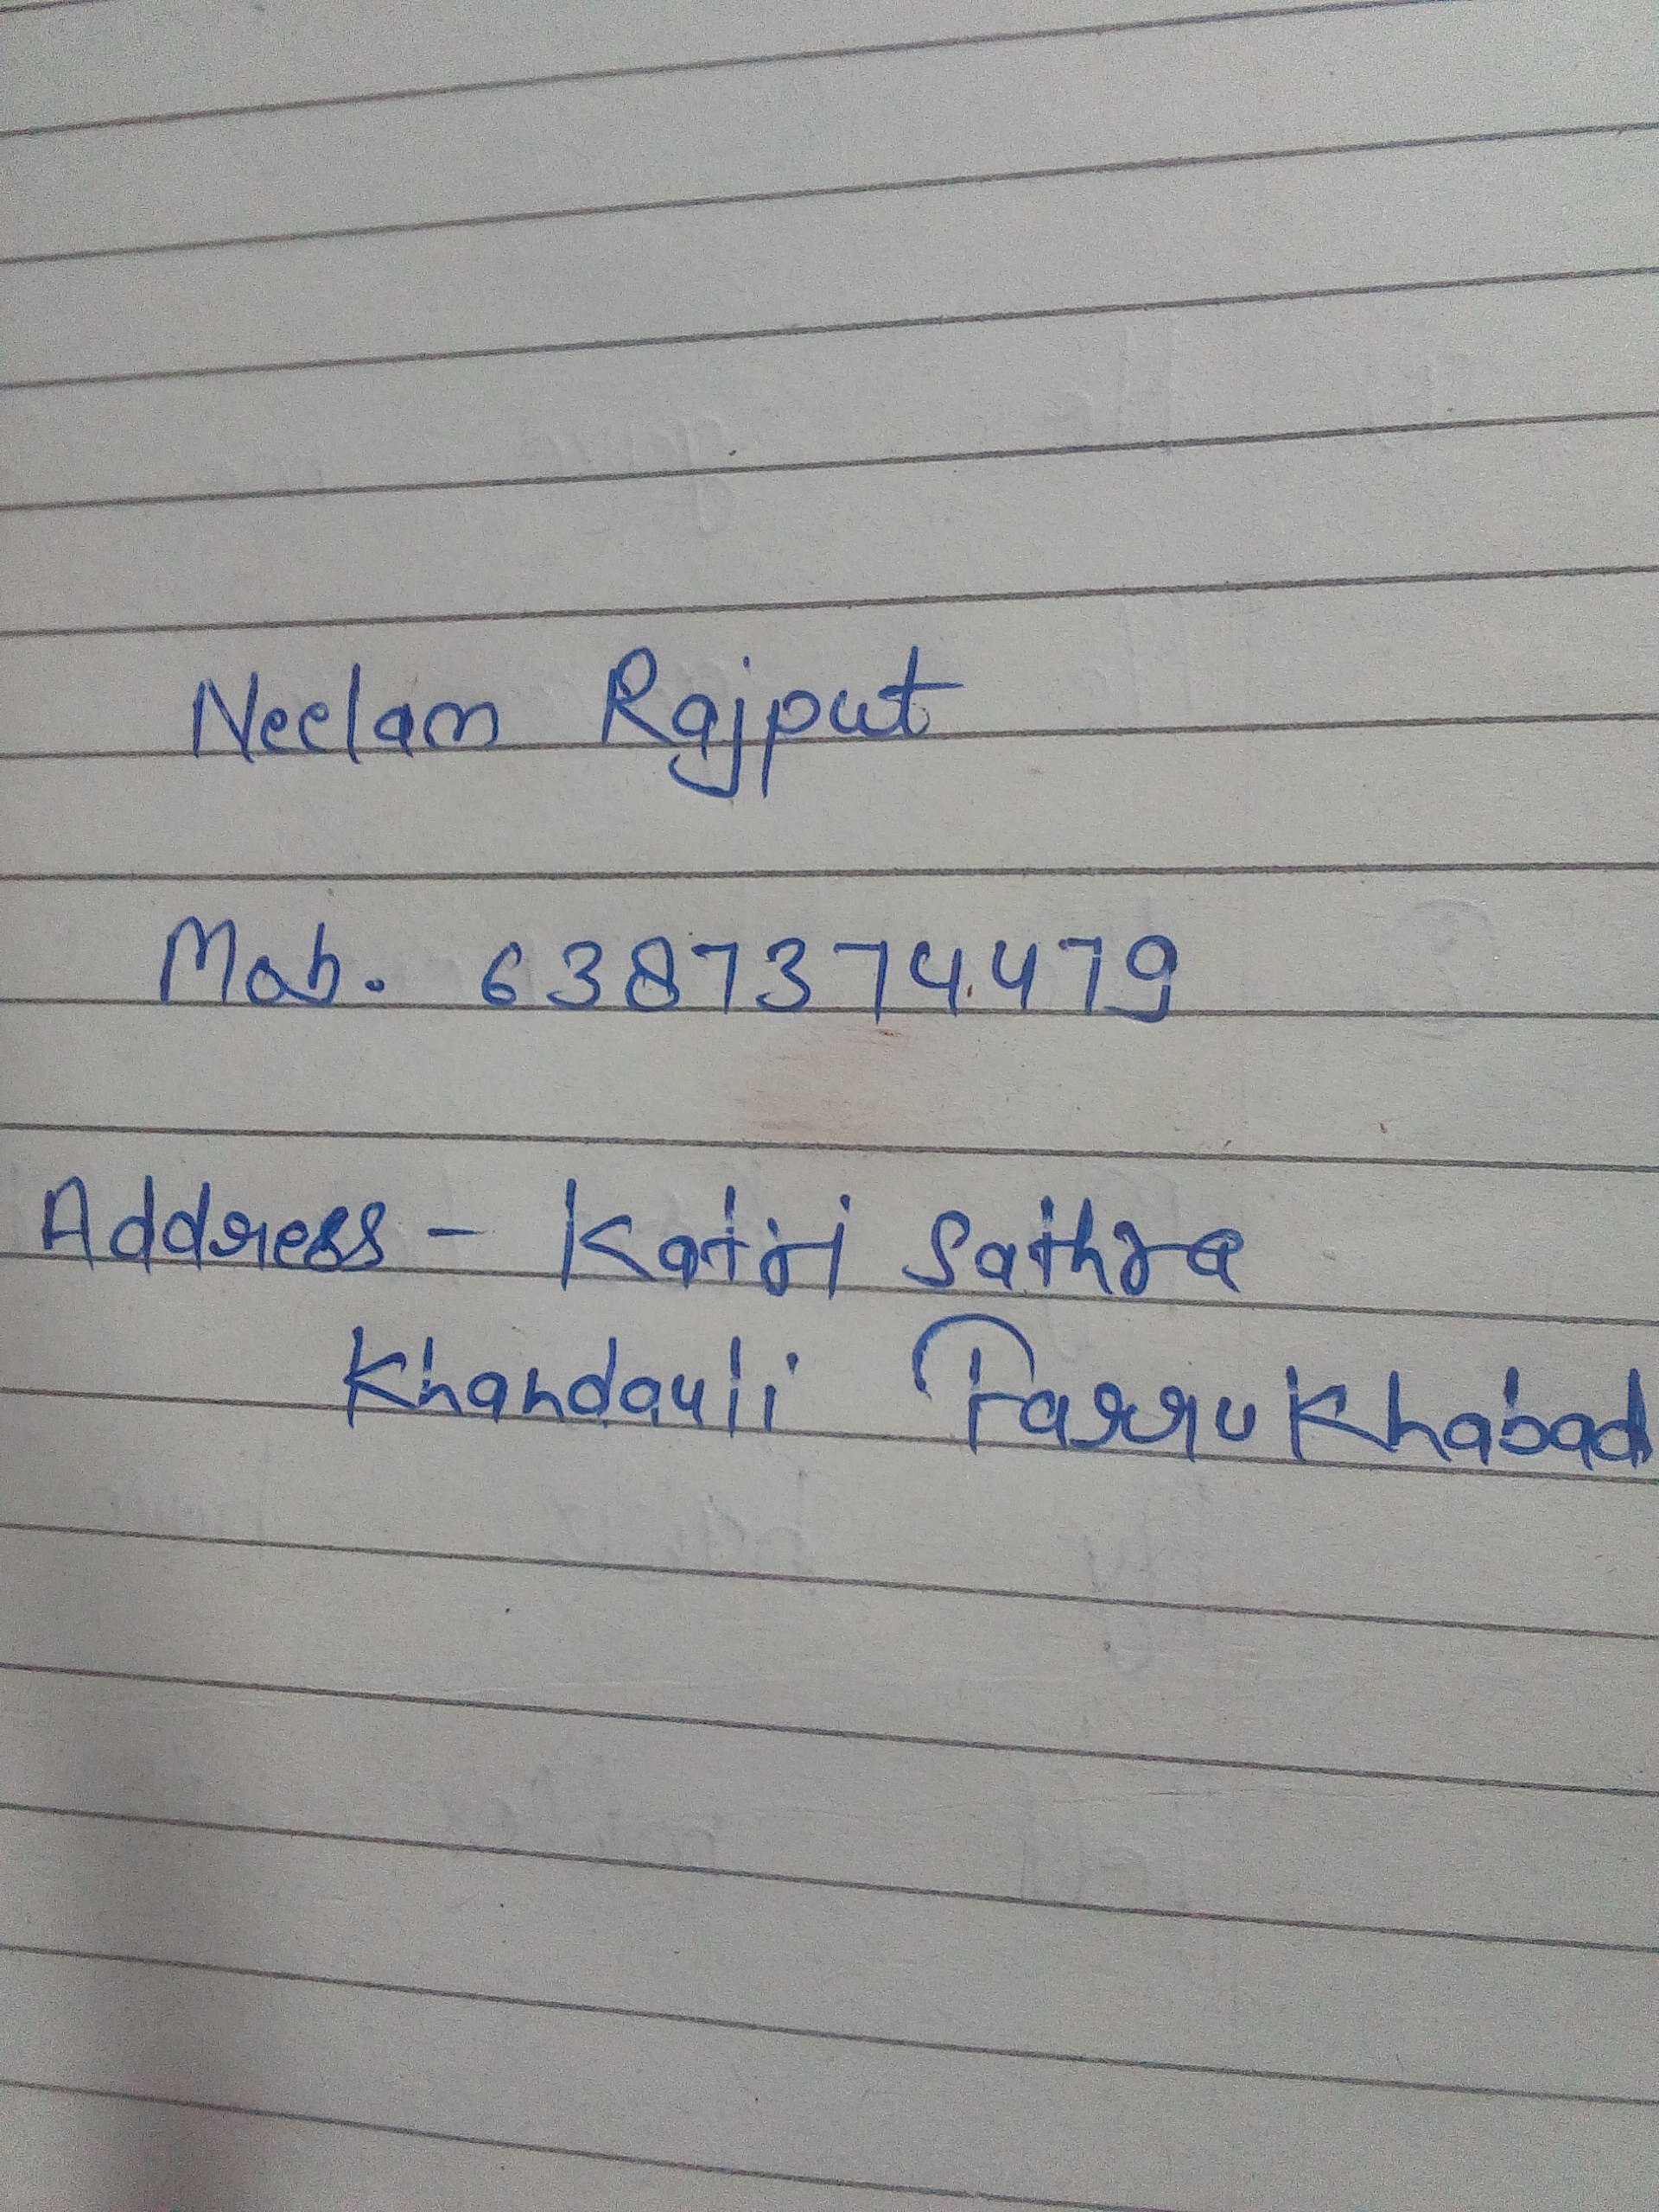 Neelam Rajput
Mob. 6387374479
Address - Katri Sathra
Khandauli Farrukhabad